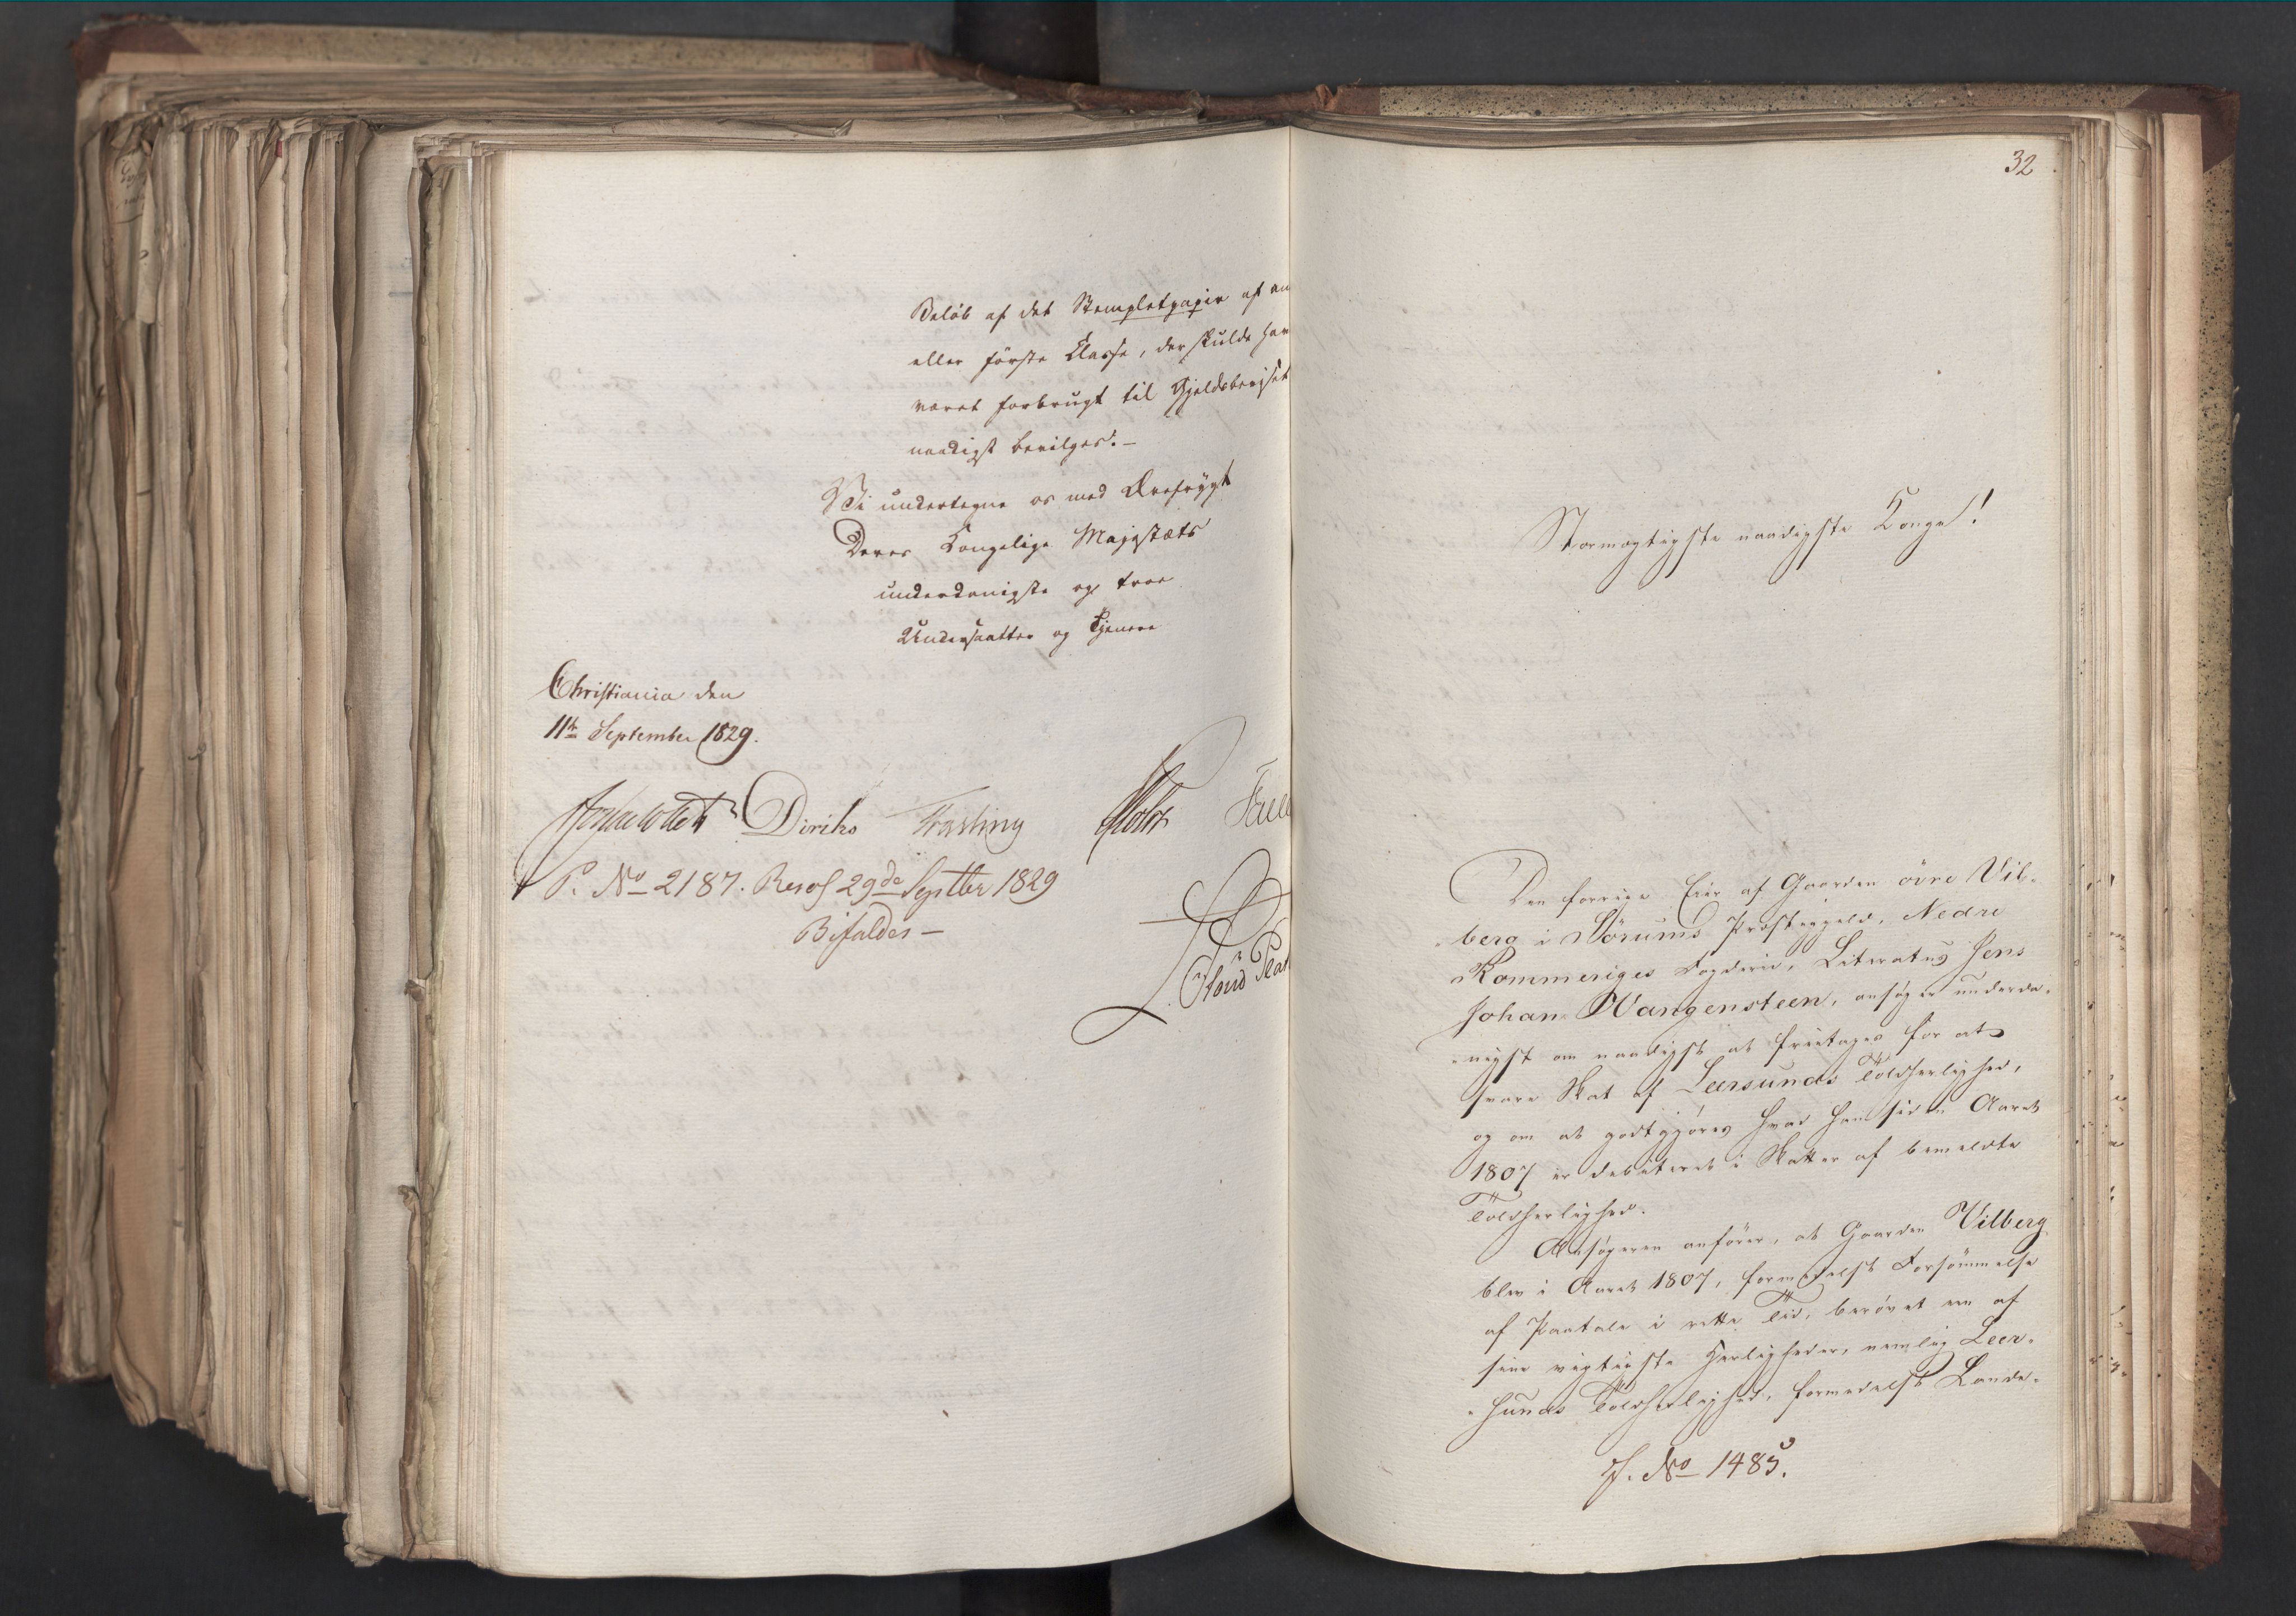 Beløb af det Stempletpapir af an
eller første Classe, der skulde hav
været forbrugt til Gjeldsbeviset
naadigst bevilges.-
Vi undertegne os med Ærefrygt
Deres Kongelige Majestæts
underdanigste og troe
Undersaatter og Tjenere
Christiania den
11te September 1829.
Diriks Fasting
P. No 2187. Resol 29de Septbr 1829
Bifaldes-
32
Stormægtigste naadigste Konge!
Den forrige Eier af Gaarden övre Vil-
berg i Sörums Præstegjeld, Nedre
Rommeriges Fogderie, Literatus Jens
Johan Vangensteen, ansøger underda-
nigst om naadigst at fritages for at
svare Skat af Leersunds Toldherlighed,
og om at godtgjøres hvad han siden Aaret
1807 er debiteret i Skatter af bemeldte
Toldherlighed.
Ansøgeren anfører, at Gaarden Vilberg
blev i Aaret 1807, formedelst Forsømmelse
af Paatale i rette Tid, berøvet en af
sine vigtigste Herligheder, nemlig Leer-
sunds Toldherlighed, formedelst Lande-
J. No 1485.